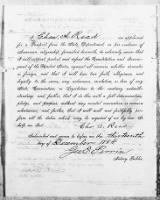 I, Chas. A. Read an applicant
for a Passport from the State Department, as an evidence of
American citizenship, formerly
that I will support, protect and defend the Constitution and Government
of the United States, against all enemies, whether domestic
or foreign, and that I will bear true faith, allegiance and
loyalty to the same, any ordinance, resolution or law of any
State, Convention or Legislature to the contrary notwith-
standing, and further, that I do this with a full determination,
pledge, and purpose, without any mental reservation or evasion
whatsoever, and further, that I will well and faithfully per-
form all the duties which may be required of me by law. So
help me God. Chas. A. Read
Subscribed and sworn to before me, this
day of December 18
Notary Public